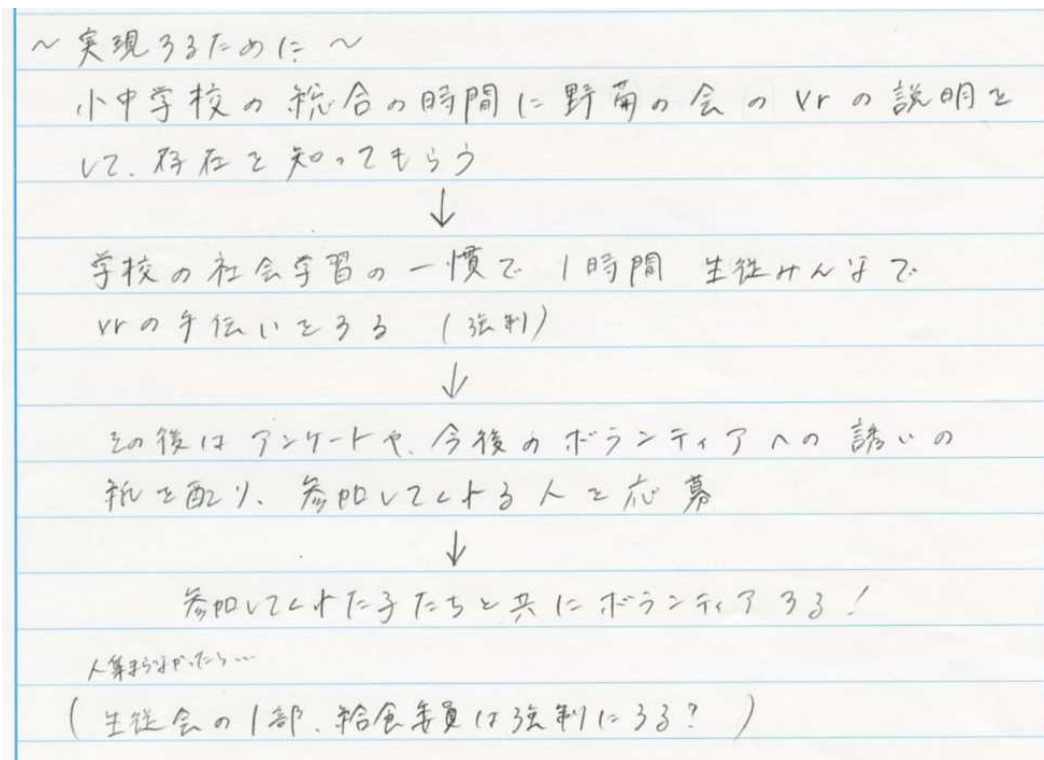 ～実現するために～
小中学校の総合の時間に野菊の会のvrの説明を
して、存在を知ってもらう
↓
学校の社会学習の一慣で 1時間 生徒みんなで
vrの手伝いをする (強制)
↓
その後はアンケートや、今後のボランティアへの誘いの
紙を配り、参加してくれる人を応募
↓
参加してくれた子たちと共にボランティアする!
人集まらなかったら…
(生徒会の1部、給食委員は強制にする?)